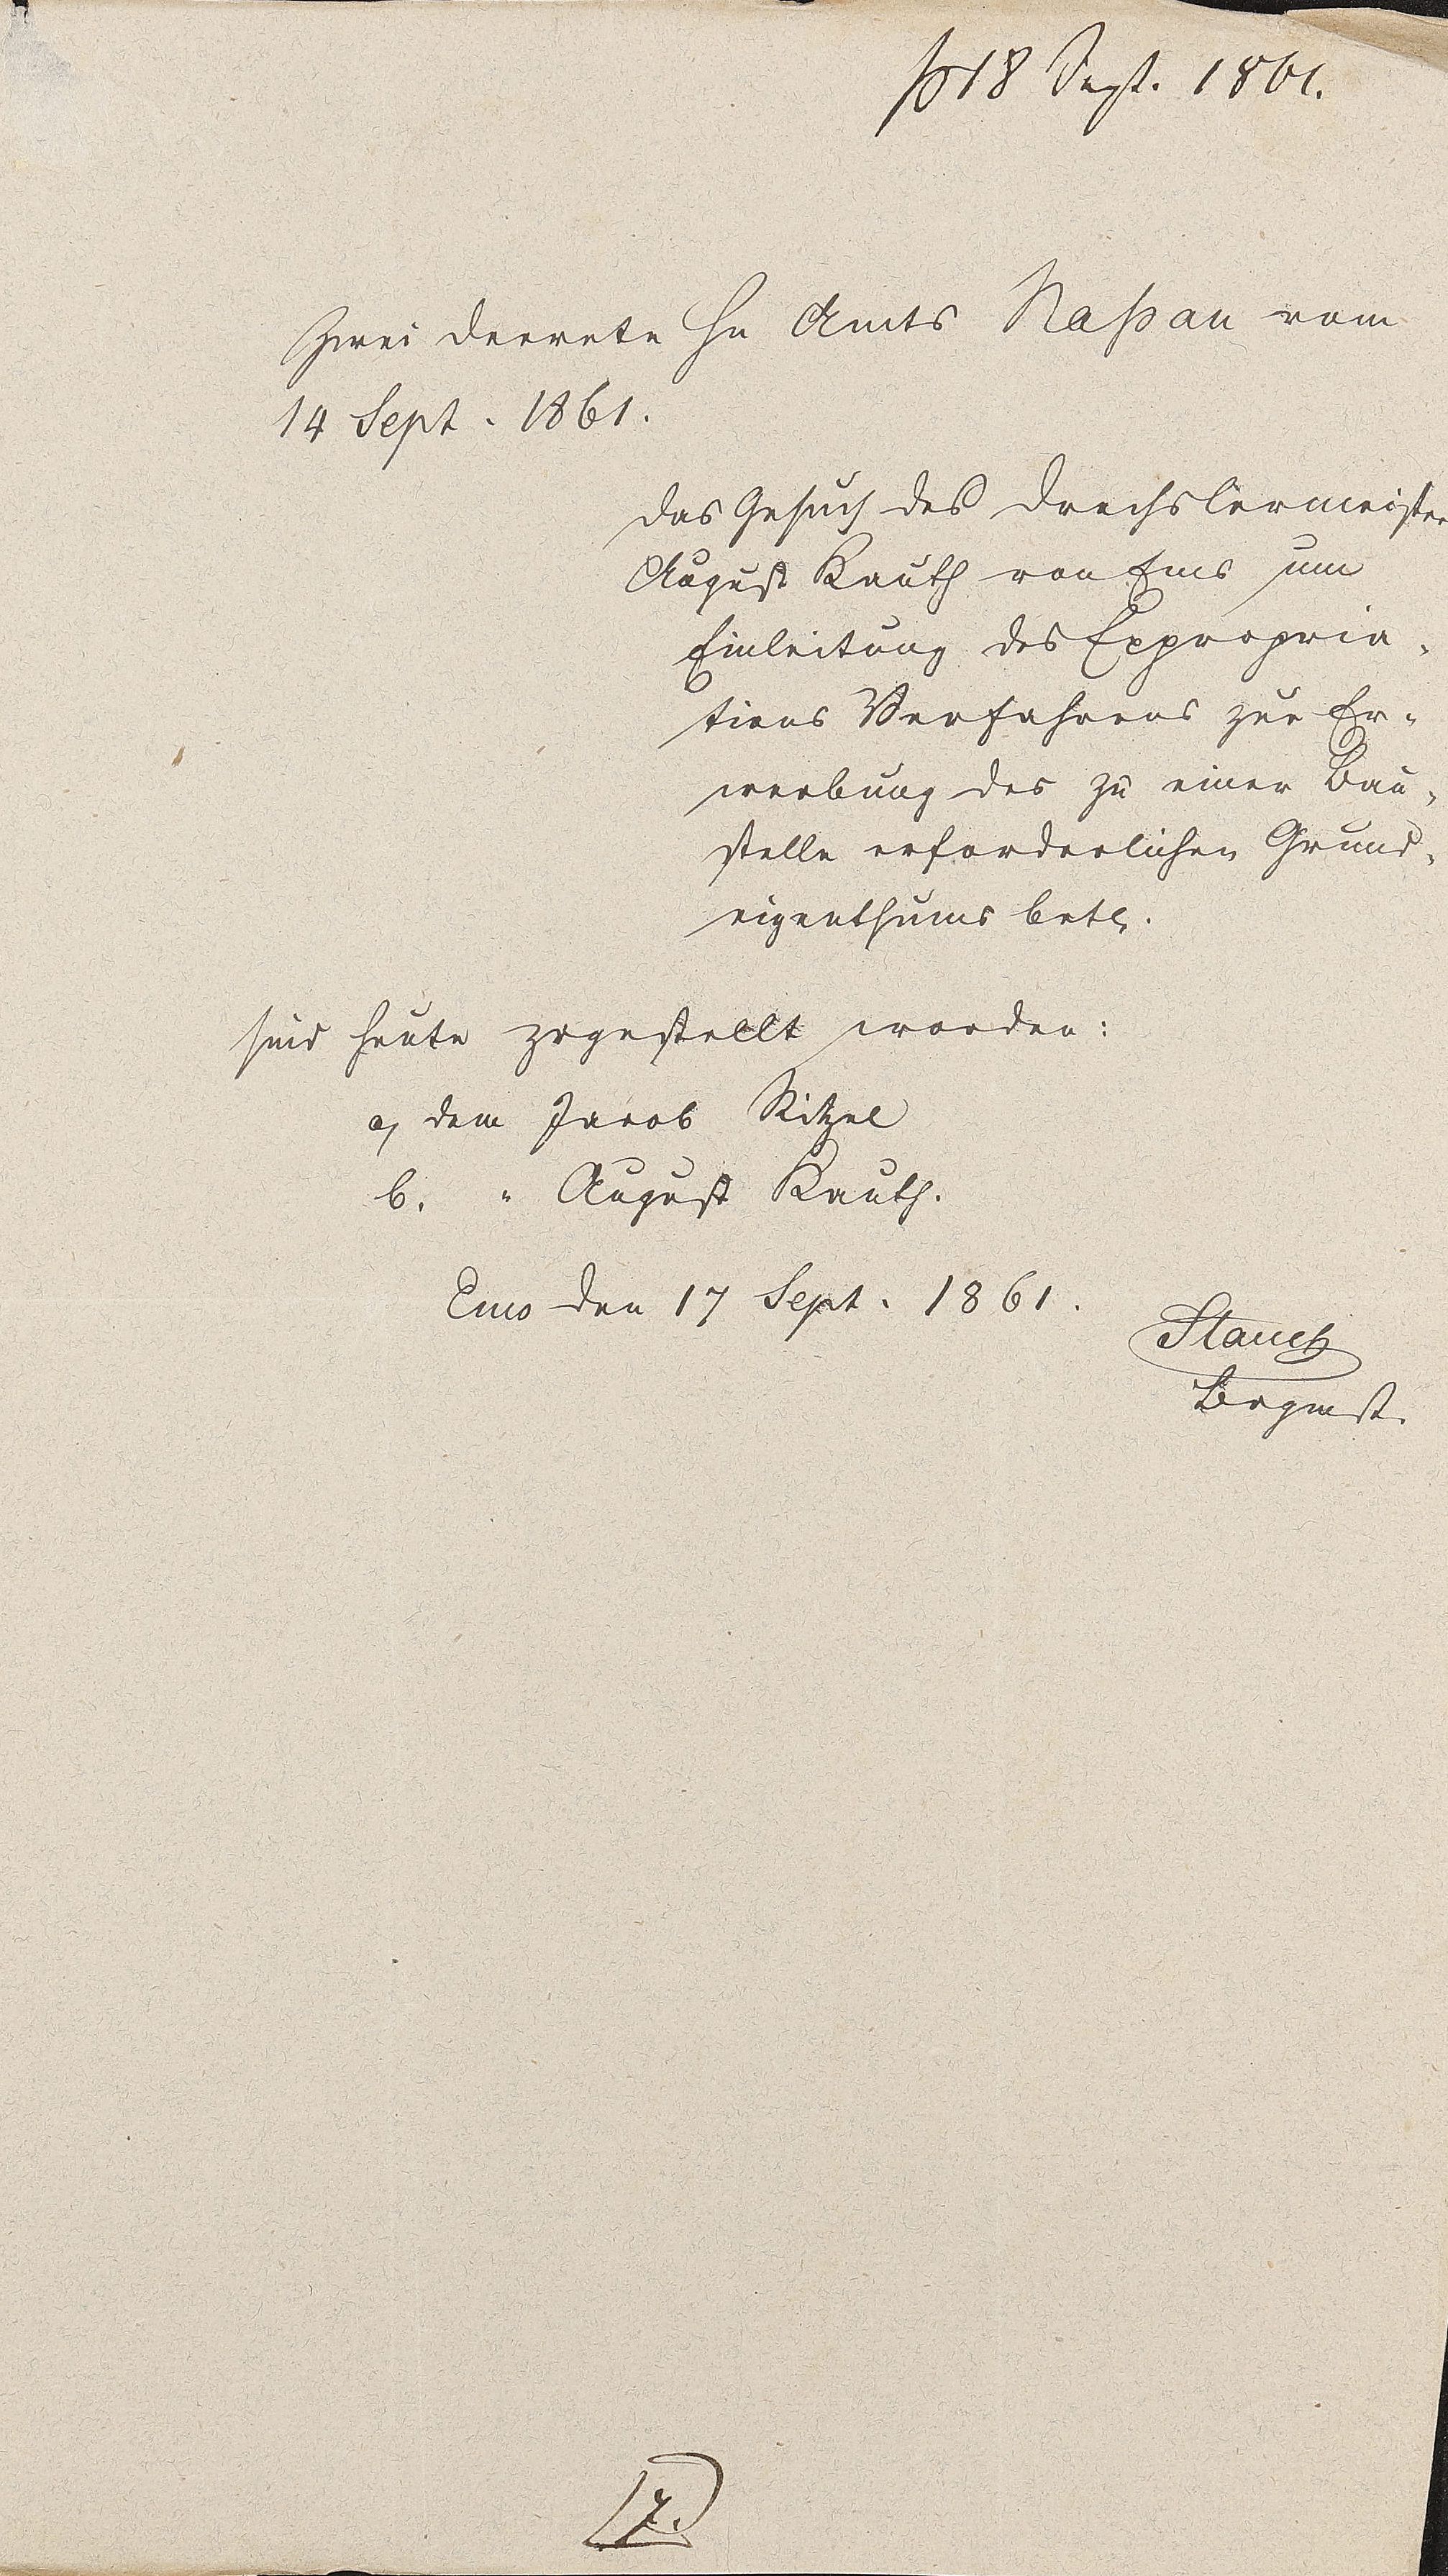 18 Sept. 1861.
Zwei Decrete Hn Amts Naßau vom
14 Sept. 1861.
das Gesuch des Drechslermeister
August Kauth von Ems um
Einleitung des Expropria-
tions Verfahrens zur Er-
werbung des zu einer Bau-
stelle erforderlichen Grund-
eigenthums betr.
sind heute zugestellt worden:
a, dem Jacob Kitzel
b. " August Kauth.
Ems den 17 Sept. 1861.
Stauch
Brgmst.
7.